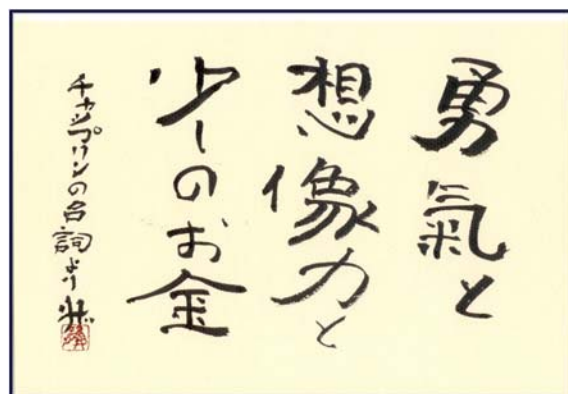 勇氣と
想像力と
少しのお金
チャップリンの台詞より